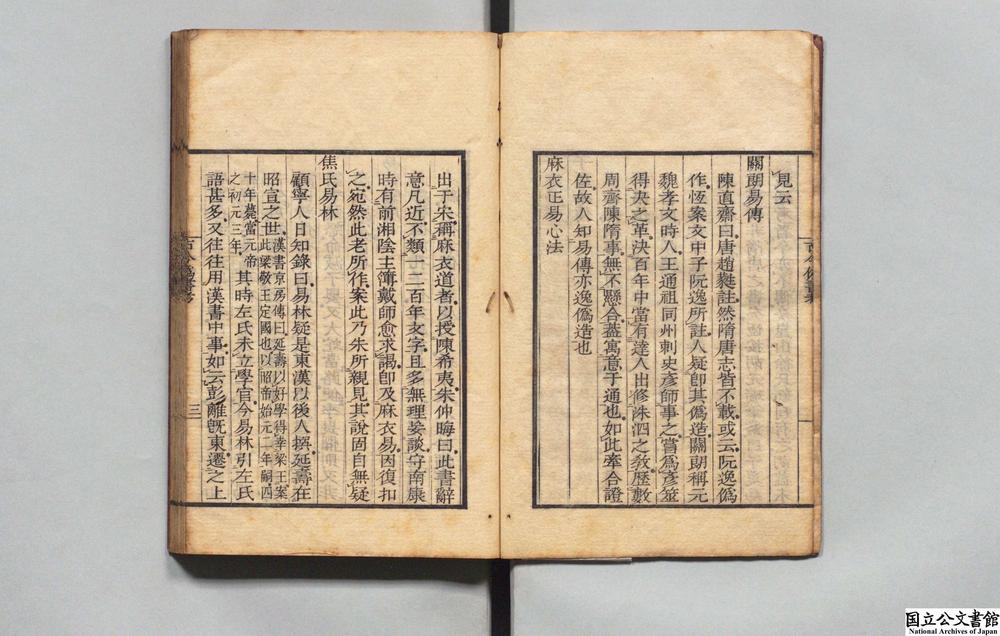 見云
關朗易傳
陳直齋曰唐趙蕤註然隋唐志皆不載或云阮逸僞
作恆案文中子阮逸所註人疑卽其僞造關朗稱元
魏孝文時人王通祖同州刺史彥師事之嘗爲彥筮
得夬之革決百年中當有達人出修洙泗之敎歷數
周齊陳隋事無不懸合蓋寓意于通也如此牽合證
佐故人知易傳亦逸僞造也
麻衣正易心法
出于宋稱麻衣道者以授陳希夷朱仲晦曰此書辭
意凡近不類一二百年文字且多無理妄談守南康
時有前湘陰主簿戴師愈求謁卽及麻衣易因復扣
之宛然此老所作案此乃朱所親見其說固自無疑
焦氏易林
顧寧人日知錄曰易林疑是東漢以後人撰延壽在
昭宣之世漢書京房傳曰延壽以好學得幸梁王案此梁敬王定國也以昭帝始元二年嗣四
十年薨當元帝之初元三年其時左氏未立學官今易林引左氏
語甚多又往往用漢書中事如云彭離旣東遷之上
古今僞書考
三
国立公文書館
National Archives of Japan